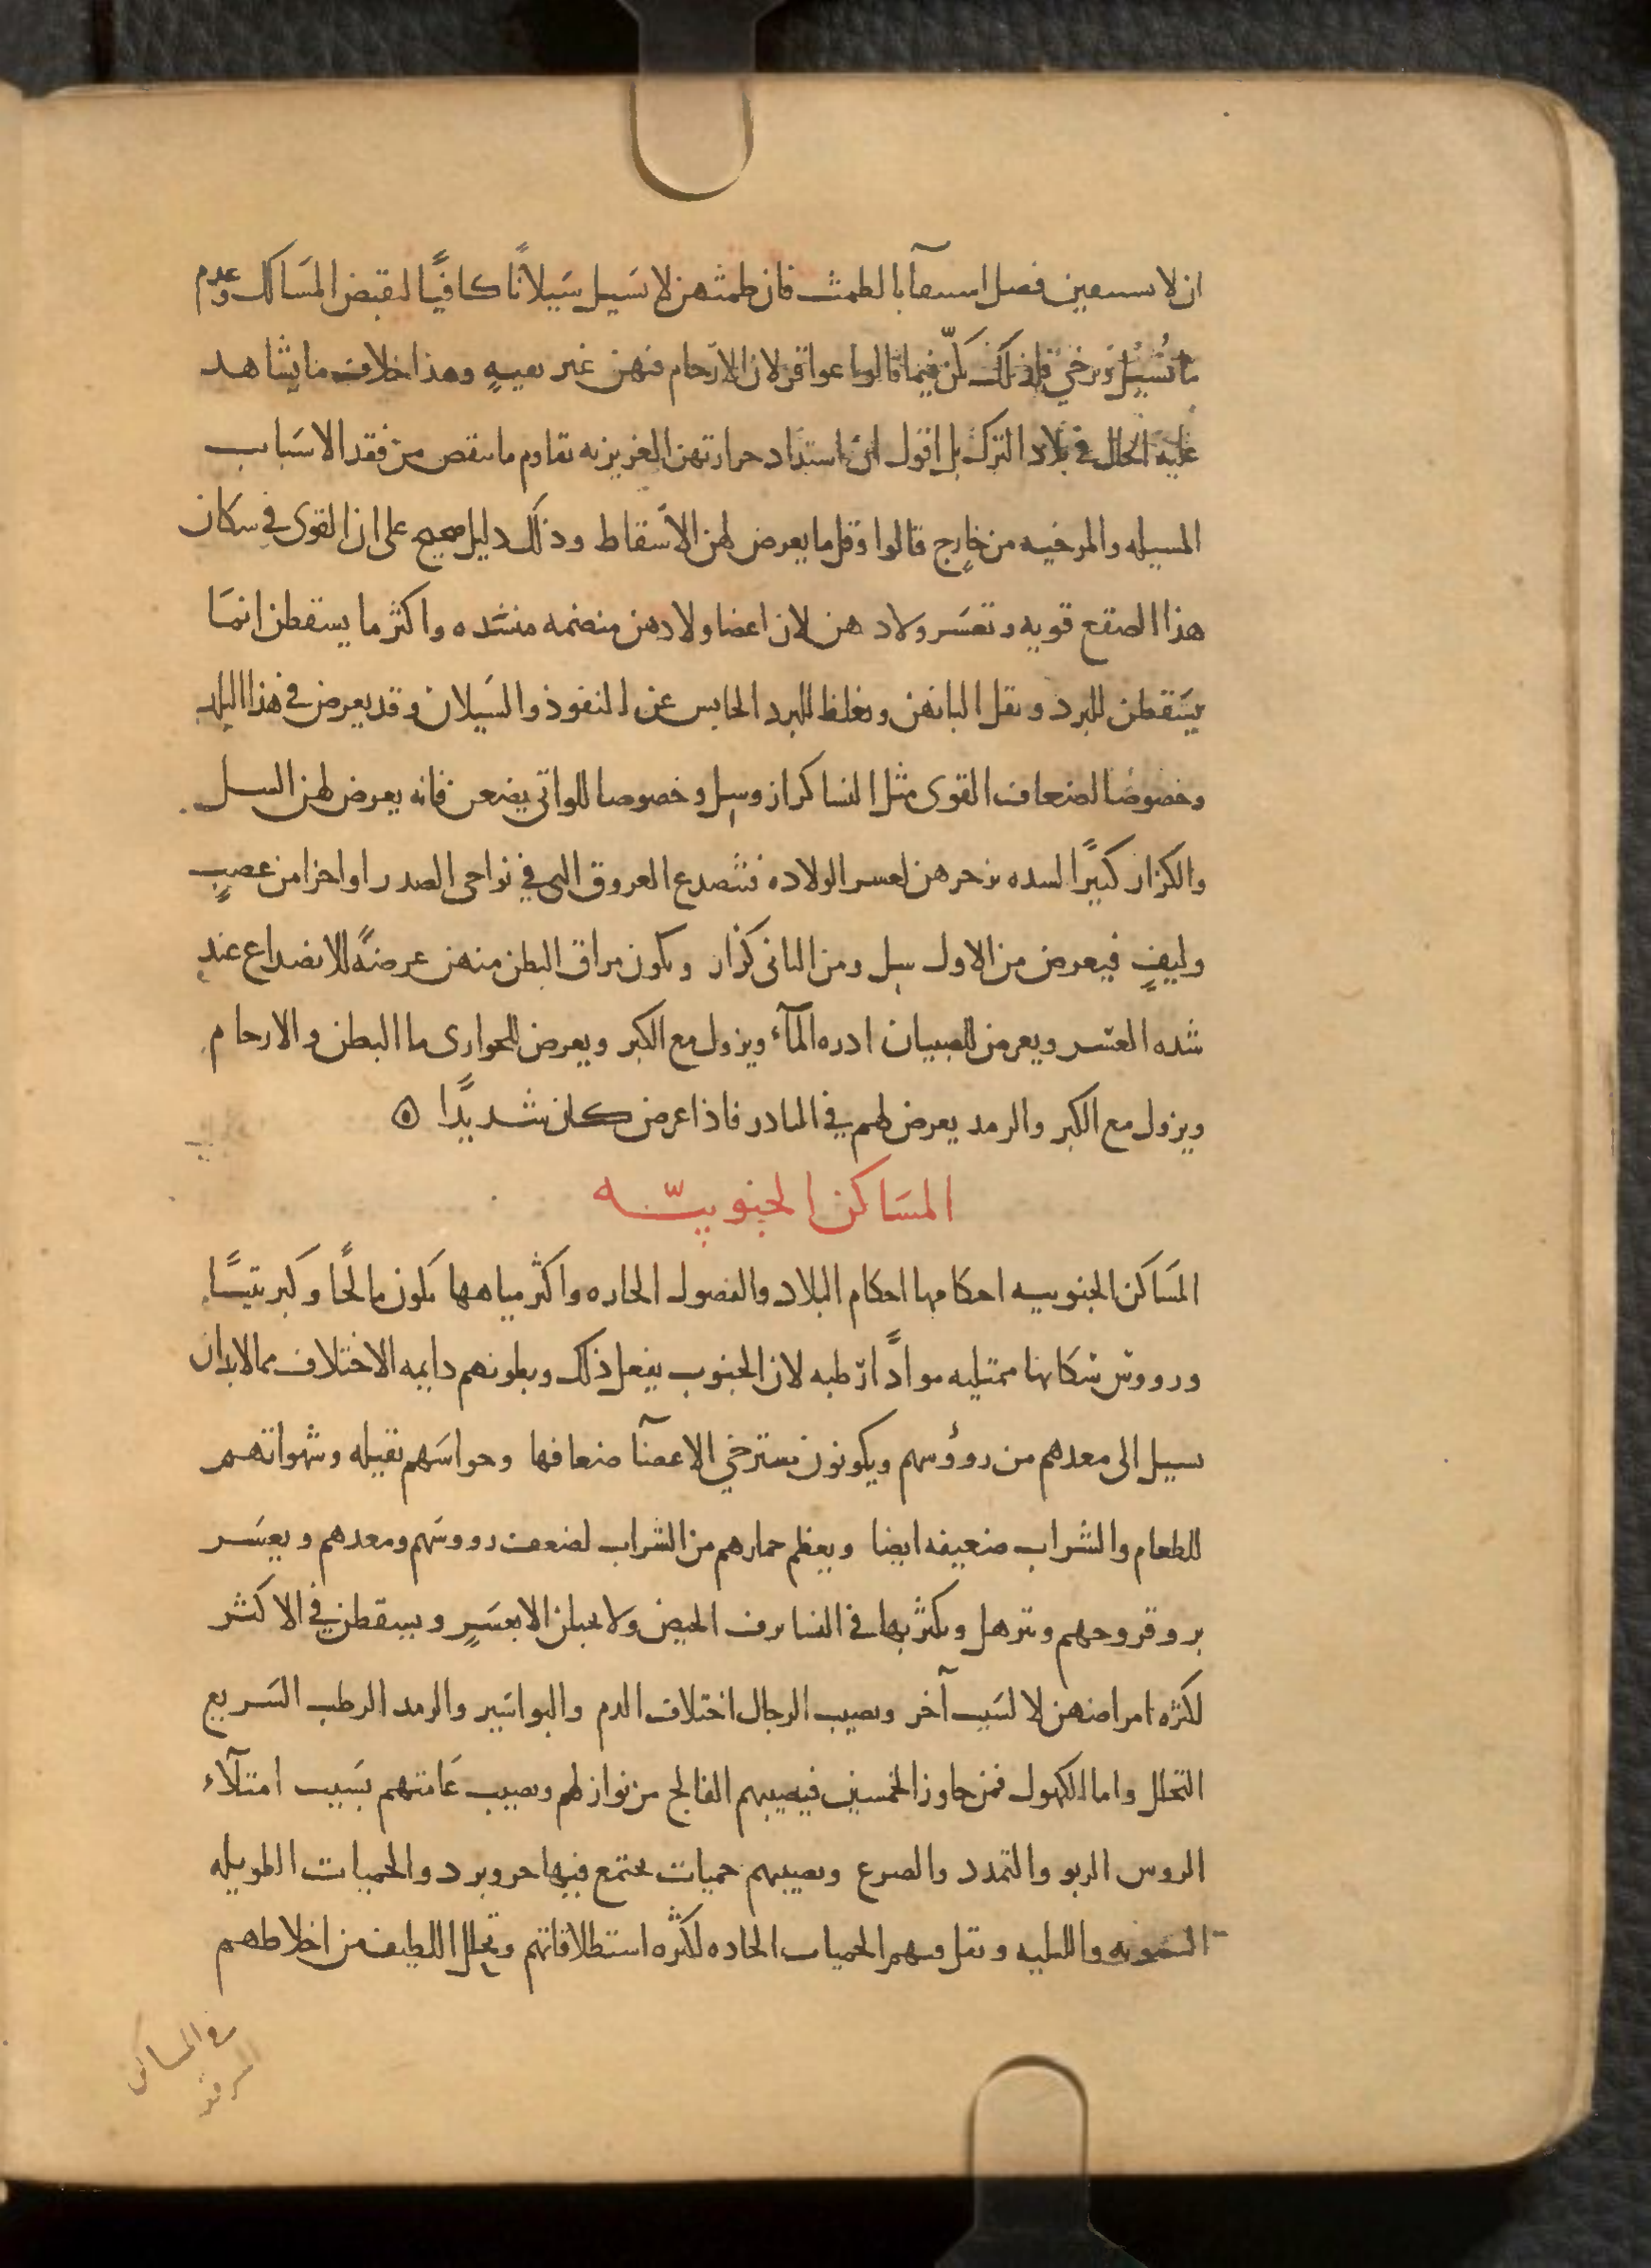 ان لا يستنقين فضل استنقآ بالطمث فان طمثهن لا تسيل سَيلانًا كافيًا لتقبض المسَالك وعدم
ما تسيل ويرخي فلذلك يكنّ فيما قالوا عواقر لان الارحام فيهن غير نقيهٍ وهذا خلاف ما يشاهد
عليه الحال في بلاد الترك بل اقول ان اشتداد حرارتهن الغريزيه تقاوم ما ينقص من فقد الاسَباب
المسيله والمرخيه من خارج قالوا وقل ما يعرض لهن الاسقاط وذلك دليل صحيح على ان القوى في سكان
هذا الصقع قويه وتعسَر ولادهن لان اعضا ولادهن منضمه منسّده واكثر ما يسقطن انمَا
يسَقطن للبرد وتقل البانهن وتغلظ للبرد الحابس عن النفوذ والسَيلان وقد يعرض في هذا البلد
وخصوصًا لضعاف القوى مثل النسا كزاز وسل وخصوصا للواتي يضعن فانه يعرض لهن السل
والكزاز كثيرًا لشده تزحرهن لعسر الولاده فتنصدع العروق التي في نواحي الصدر او اجزا من عصبٍ
وليفٍ فيعرض من الاول سل ومن الثاني كزاز وتكون مراق البطن منهن عرضةً للانصداع عند
شده العسر ويعرض للصبيان ادره المآء ويزول مع الكبر ويعرض للجواري ما البطن والارحام
ويزول مع الكبر والرمد يعرض لهم في النادر فاذا عرض كان شديدًا ه
المسَاكن الجنوبيّه
المَساكن الجنوبيه احكامها احكام البلاد والفصول الحاره واكثر مياهها يكون مالحًا وكبريتيًا
ورووس سكانها ممتليه موادًا رطبه لان الجنوب يفعل ذلك وبطونهم دايمه الاختلاف مما لابد ان
يسيل الى معدهم من روؤسهم ويكونون مسترخي الاعضآ ضعافها وحواسَهم ثقيله وشهواتهم
للطعام والشراب ضعيفه ايضا ويعظم خمارهم من الشراب لضعف رووسَهم ومعدهم ويعسَر
برو قروحهم وتترهل ويكثر بها في النسا نزف الحيض ولا يحبلن الا بعسَرٍ ويسقطن في الاكثر
لكثره امراضهن لا لسَبب آخر ويصيب الرجال اختلاف الدم والبواسَير والرمد الرطب السَريع
التحلل واما الكهول فمن جاوز الخمسين فيصيبهم الفالج من نوازلهم ويصيب عَامتهم بسَبب امتلآء
الروس الربو والتمدد والصرع ويصيبهم حميات يجتمع فيها حر وبرد والحميات الطويله
الشتويه والليليه وتقل فيهم الحميات الحاده لكثره استطلاقاتهم وتحلل اللطيف من اخلاطهم
في المساكن